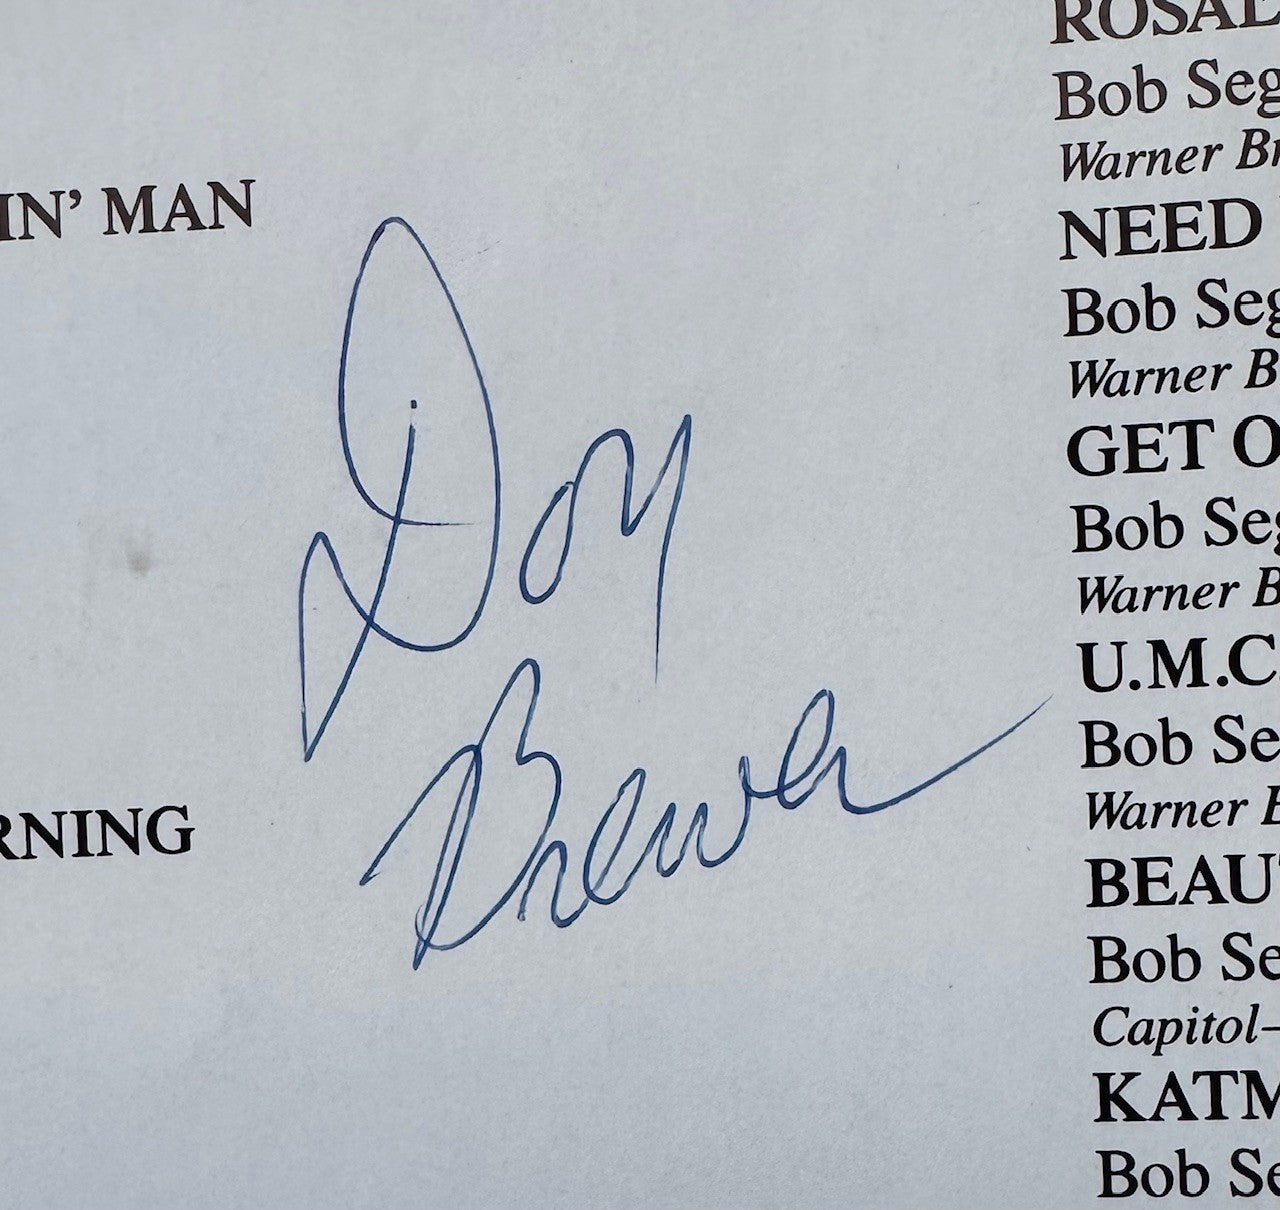 IN' MAN
RNING
Don
Brewer
ROSAL
Bob Seg
Warner Br
NEED
Bob Seg
Warner B
GET O
Bob Seg
Warner B
U.M.C.
Bob Se
Warner B
BEAUT
Bob Se
Capitol–
KATM
Bob Se